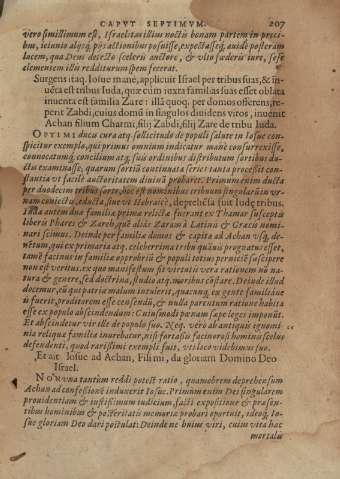 CAPVT SEPTIMVM. 207
vero simillimum est, Israelitas illius noctis bonam partem in preci-
bus, ieiunio alijsq́; pijs actionibus posuisse, expectasseq́; auide posteram
lucem, qua Deus detecto sceleris auctore, & vitæ fœderi iure, sese
clementem illis redditurum spem fecerat.
Surgens itaq; Iosue mane, applicuit Israel per tribus suas, & in-
uẽta est tribus Iuda, quæ cum iuxta familias suas esset oblata
inuenta est familia Zare: illã quoq; per domos offerens, re-
perit Zabdi, cuius domũ in singulos diuidens viros, inuenit
Achan filium Charmi, filij Zabdi, filij Zare de tribu Iuda.
OPTIMI ducis cura atq; sollicitudo de populi salute in Iosue con-
spicitur exemplo, qui primus omnium indicatur mane consurrexisse,
conuocatumq́; concilium atq; suis ordinibus distributum sortibus du-
ctu examinasse, quarum sortiũ continuata series tanta processit con-
stantia vt facile auctoritatem diuinã probaret. Primum enim ducta
per duodecim tribus sorte, hoc est nominibus tribuum singularũ in vr-
nam coniectis, educta siue vt Hebraicè, deprehẽsa fuit Iudę tribus.
Iuda autem duæ familiæ prima relicta fuerant ex Thamar susceptis
liberis Phares & Zareh, quẽ aliàs Zaram à Latinis & Græcis nomi-
nari scimus. Deinde per familias domus & capita ad Achan vsq́; de-
uẽtum, qui ex primaria atq; celeberrima tribu quãuis prognatus esset,
tamẽ facinus in familiæ opprobriũ & populi totius perniciẽ suscipere
non est veritus. ex quo manifestum sit virtutis vera rationem nõ na-
tura & genere, sed doctrina, studio atq; moribus cõstare. Deinde illud
docemur, eũ qui patriæ malum inculerit, quacunq; ex gente familiaue
is fuerit, proditorem esse censendũ, & nulla parentum ratione habita
esse ex populo abscindendum: Cuiusmodi pœnam sæpe leges imponũt.
Et abscindetur vir ille de populo suo. Neq; vero ab antiquis ignomi-
nia reliquæ familiæ inurebatur, nisi fortassis facinorosi hominis scelus
defendenti, quod rarissimi exempli fuit, vti loco videbimus suo.
Et ait Iosue ad Achan, Fili mi, da gloriam Domino Deo
Israel.
NON vna tantum reddi potest ratio, quamobrem deprehensum
Achan ad confessionẽ induxerit Iosue. Primũm enim Dei singularem
prouidentiam & iustissimum iudicium, facti expositione & præsen-
tibus hominibus & posteritatis memoriæ probari oportuit, ideoq́; Io-
sue gloriam Deo dari postulat: Deinde ne huius viri, cuim vita hac
mortalis